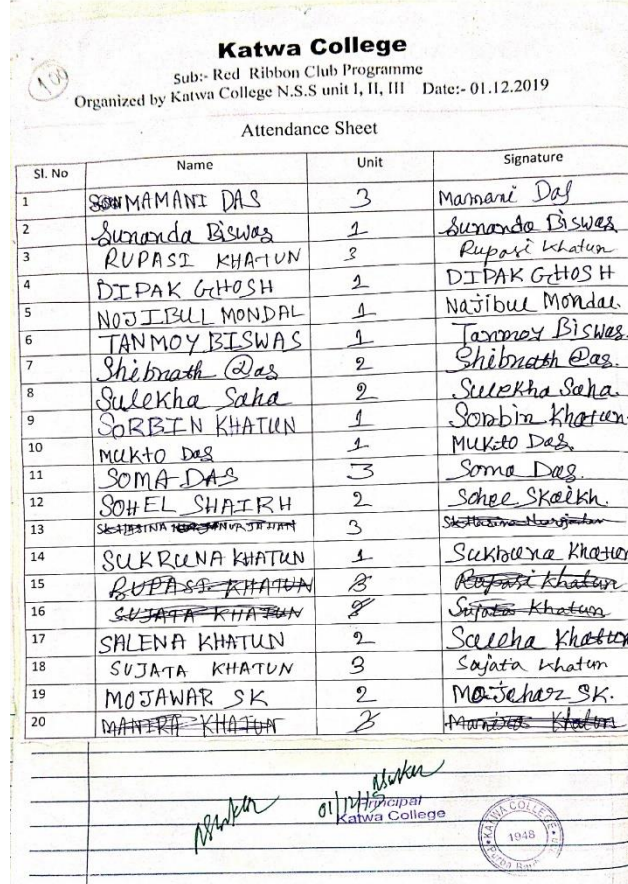 100
Katwa College
Sub:- Red Ribbon Club Programme
Organized by Katwa College N.S.S unit I, II, III Date:- 01.12.2019
Attendance Sheet
Sl. No Name Unit Signature
1 MAMANI DAS 3 Mamani Das
2 Sunanda Biswas 1 Sunanda Biswas
3 RUPASI KHATUN 3 Rupasi Khatun
4 DIPAK GHOSH 1 DIPAK GHOSH
5 NOJIBUL MONDAL 1 Najibul Mondal
6 TANMOY BISWAS 1 Tanmoy Biswas.
7 Shibnath Das 2 Shibnath Das.
8 Sulekha Saha 2 Sulekha Saha.
9 SORBIN KHATUN 1 Sorbin Khatun.
10 MUKTO Das 1 MUKTO Das.
11 SOMA DAS 3 Soma Das.
12 SOHEL SHAIRH 2 Sohel Skaikh.
13 3
14 SUKRUNA KHATUN 1 Khatun
15 RUPASI KHATUN 3 Rupasi Khatun
16 SUJATA KHATUN Sujata Khatun
17 SALENA KHATUN 2 Khatun
18 SUJATA KHATUN 3 Sajata Khatun
19 MOJAWAR SK 2 SK.
20 MANIRA KHATUN 3 Manira Khatun
01/12/19
Principal
Katwa College
KATWA COLLEGE
1948